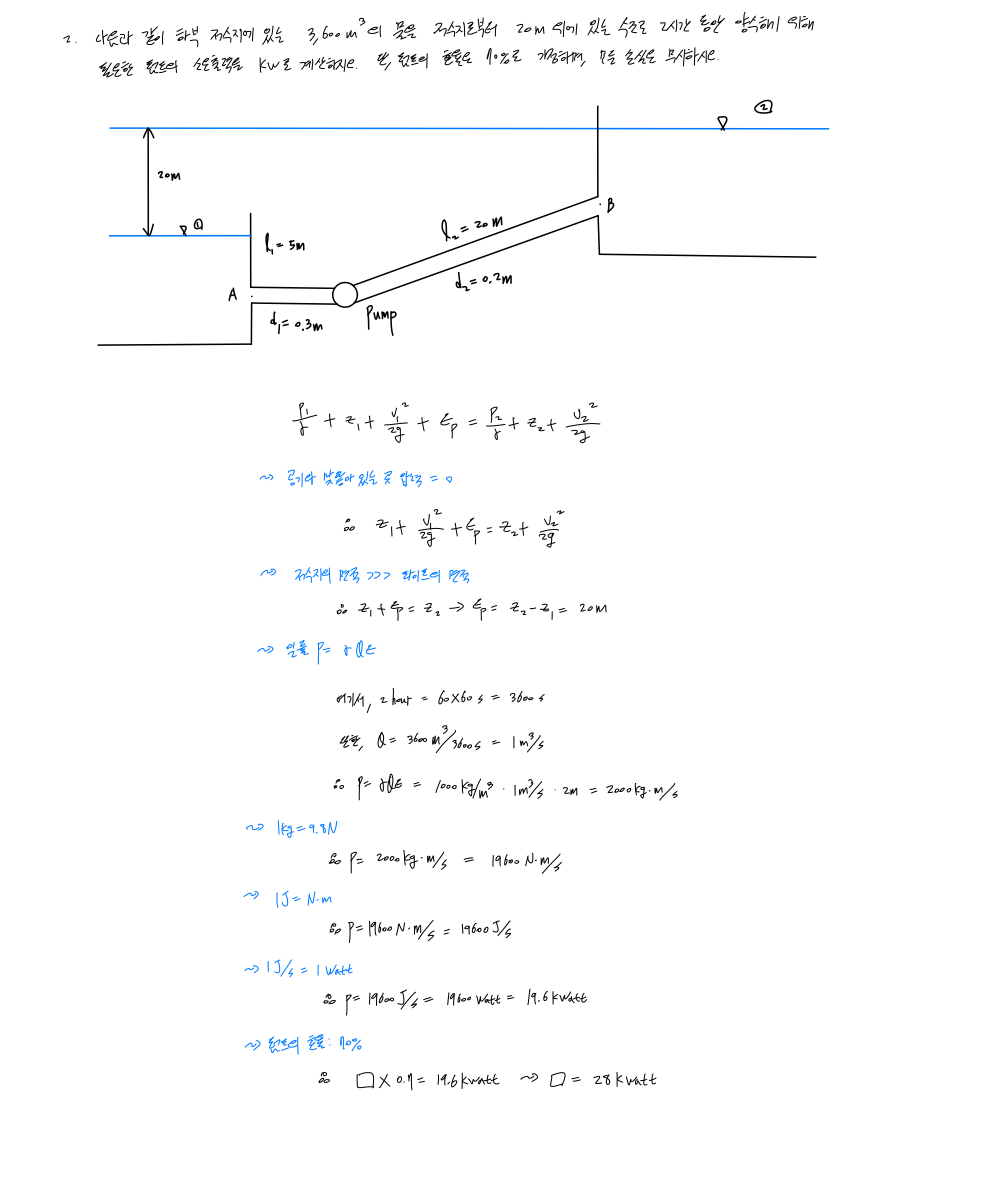 2. 다음과 같이 하부 저수지에 있는 3,600 m³의 물을 저수지로부터 20m 위에 있는 수조로 2시간 동안 양수하기 위해
필요한 펌프의 소요출력을 kW로 계산하시오. 단, 펌프의 효율은 70%로 가정하며, 모든 손실은 무시하시오.
②
20m
①
l₁ = 5m
l₂ = 20m
B
A
d₂ = 0.2m
d₁ = 0.3m
Pump
P₁/γ + z₁ + V₁²/2g + Ep = P₂/γ + z₂ + V₂²/2g
~> 공기와 맞닿아 있는 곳 압력 = 0
∴ z₁ + V₁²/2g + Ep = z₂ + V₂²/2g
~> 저수지의 면적 >>> 파이프의 면적
∴ z₁ + Ep = z₂ → Ep = z₂ - z₁ = 20m
~> 일률 P = γQE
여기서, 2 hour = 60×60 s = 3600 s
또한, Q = 3600 m³/3600s = 1 m³/s
∴ P = γQE = 1000 kg/m³ · 1m³/s · 2m = 2000 kg·m/s
~> 1kg = 9.8N
∴ P = 2000 kg·m/s = 19600 N·m/s
~> 1J = N·m
∴ P = 19600 N·m/s = 19600 J/s
~> 1J/s = 1 Watt
∴ P = 19600 J/s = 19600 Watt = 19.6 kwatt
~> 펌프의 효율: 70%
∴ □ × 0.7 = 19.6 kwatt ~> □ = 28 kwatt